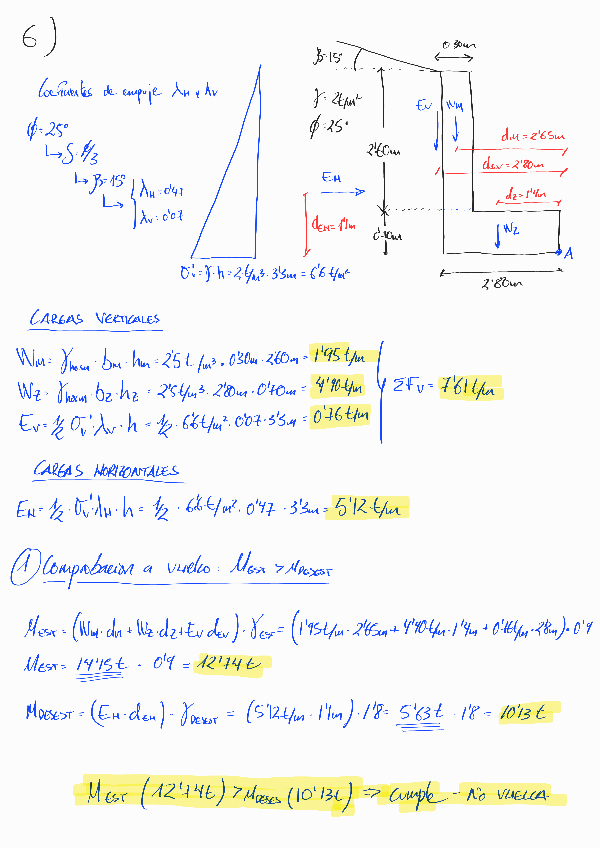 6)
Coeficientes de empuje λH y λV
ϕ=25°
↳ δ=ϕ/3
↳ β=15°
↳ { λH=0'47
λV=0'07
σ'v=γ·h=2t/m³·3'3m=6'6t/m²
β=15°
γ=2t/m²
ϕ=25°
0'30m
EV
WM
dM=2'65m
dEV=2'80m
dZ=1'4m
2'60m
EH
dEH=1'1m
WZ
A
2'80m
CARGAS VERTICALES
WM= γhorm · bM · hM = 2'5 t/m³ · 0'30m · 2'60m = 1'95 t/m
WZ= γhorm bZ·hZ = 2'5 t/m³ · 2'80m · 0'40m = 4'90 t/m
EV= ½ σ'v·λV·h = ½· 6'6t/m²·0'07·3'3m= 0'76t/m
ΣFV= 7'61t/m
CARGAS HORIZONTALES
EH= ½ · σ'v·λH·h = ½ · 6'6t/m² · 0'47 · 3'3m= 5'12 t/m
① Comprobacion a vuelco: MEST > MDESEST
MEST= (WM·dM+WZ·dZ+EV dEV) · γEST= (1'95t/m·2'65m+4'90t/m·1'4m+0'76t/m·2'8m)·0'9
MEST= 14'15t · 0'9 = 12'74 t
MDESEST = (EH·dEH) · γDESEST = (5'12t/m·1'1m)·1'8= 5'63t · 1'8 = 10'13 t
MEST (12'74t) > MDESES (10'13t) => Cumple - NO VUELCA